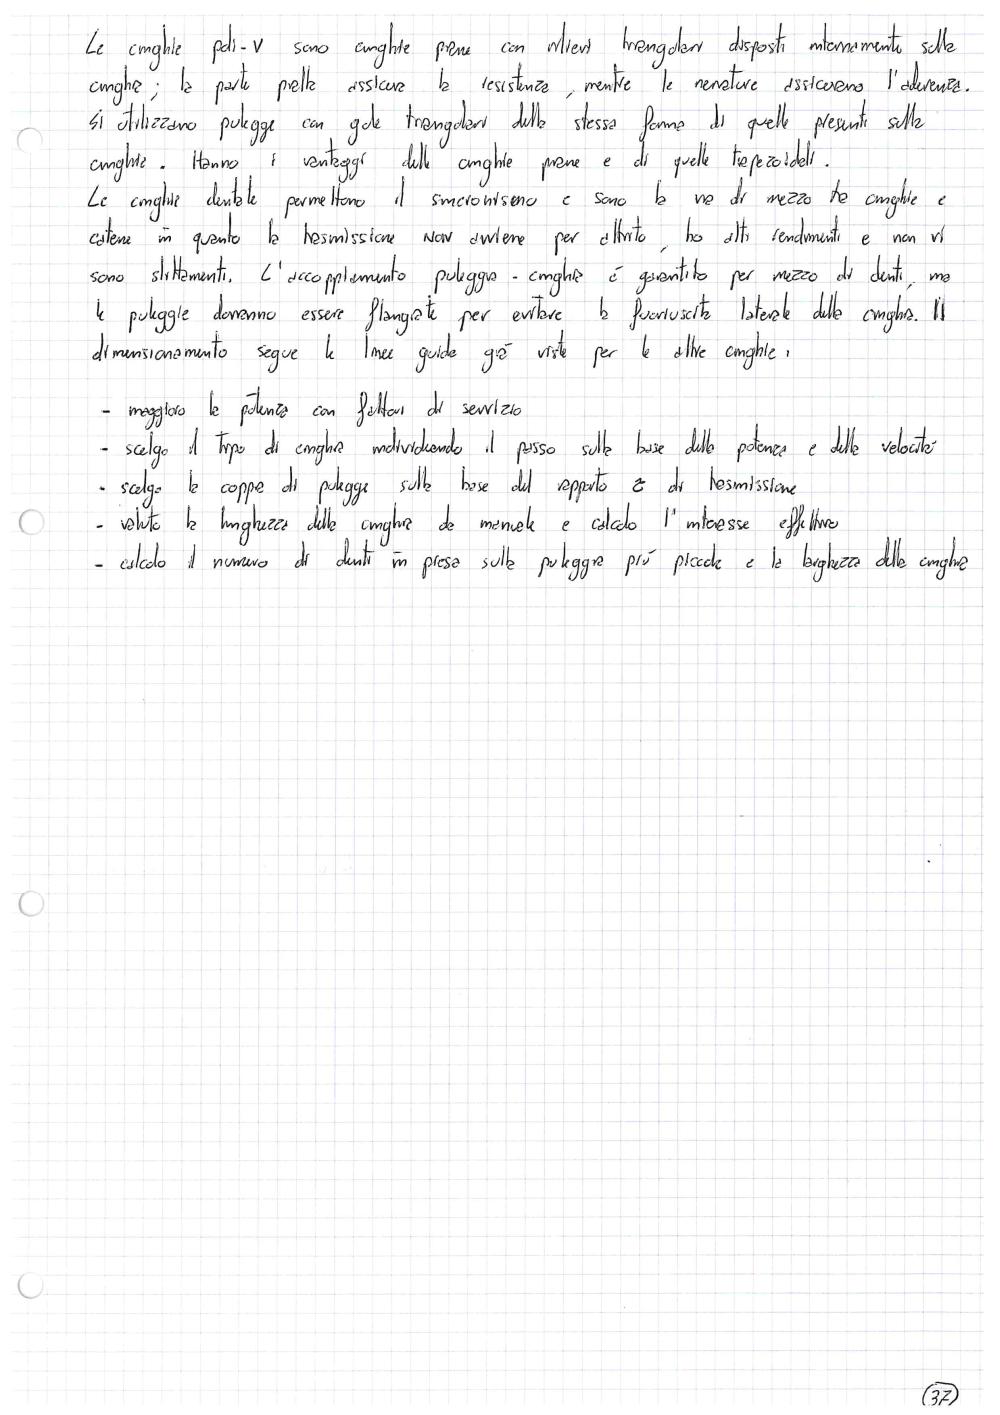 Le cinghie poli-V sono cinghie piane con rilievi triangolari disposti internamente sulla
cinghia; la parte piatta assicura la resistenza, mentre le nervature assicurano l'aderenza.
Si utilizzano pulegge con gole triangolari della stessa forma di quelle presenti sulla
cinghia. Hanno i vantaggi delle cinghie piane e di quelle trapezoidali.
Le cinghie dentate permettono il sincronismo e sono la via di mezzo tra cinghie e
catene in quanto la trasmissione NON avviene per attrito, ho alti rendimenti e non vi
sono slittamenti. L'accoppiamento puleggia - cinghia è garantito per mezzo di denti, ma
le pulegge dovranno essere flangiate per evitare la fuoriuscita laterale della cinghia. Il
dimensionamento segue le linee guida già viste per le altre cinghie:
- maggioro la potenza con fattori di servizio
- scelgo il tipo di cinghia individuando il passo sulla base della potenza e della velocità
- scelgo la coppia di pulegge sulla base del rapporto τ di trasmissione
- valuto la lunghezza della cinghia da manuale e calcolo l'interesse effettivo
- calcolo il numero di denti in presa sulla puleggia più piccola e la larghezza della cinghia
37